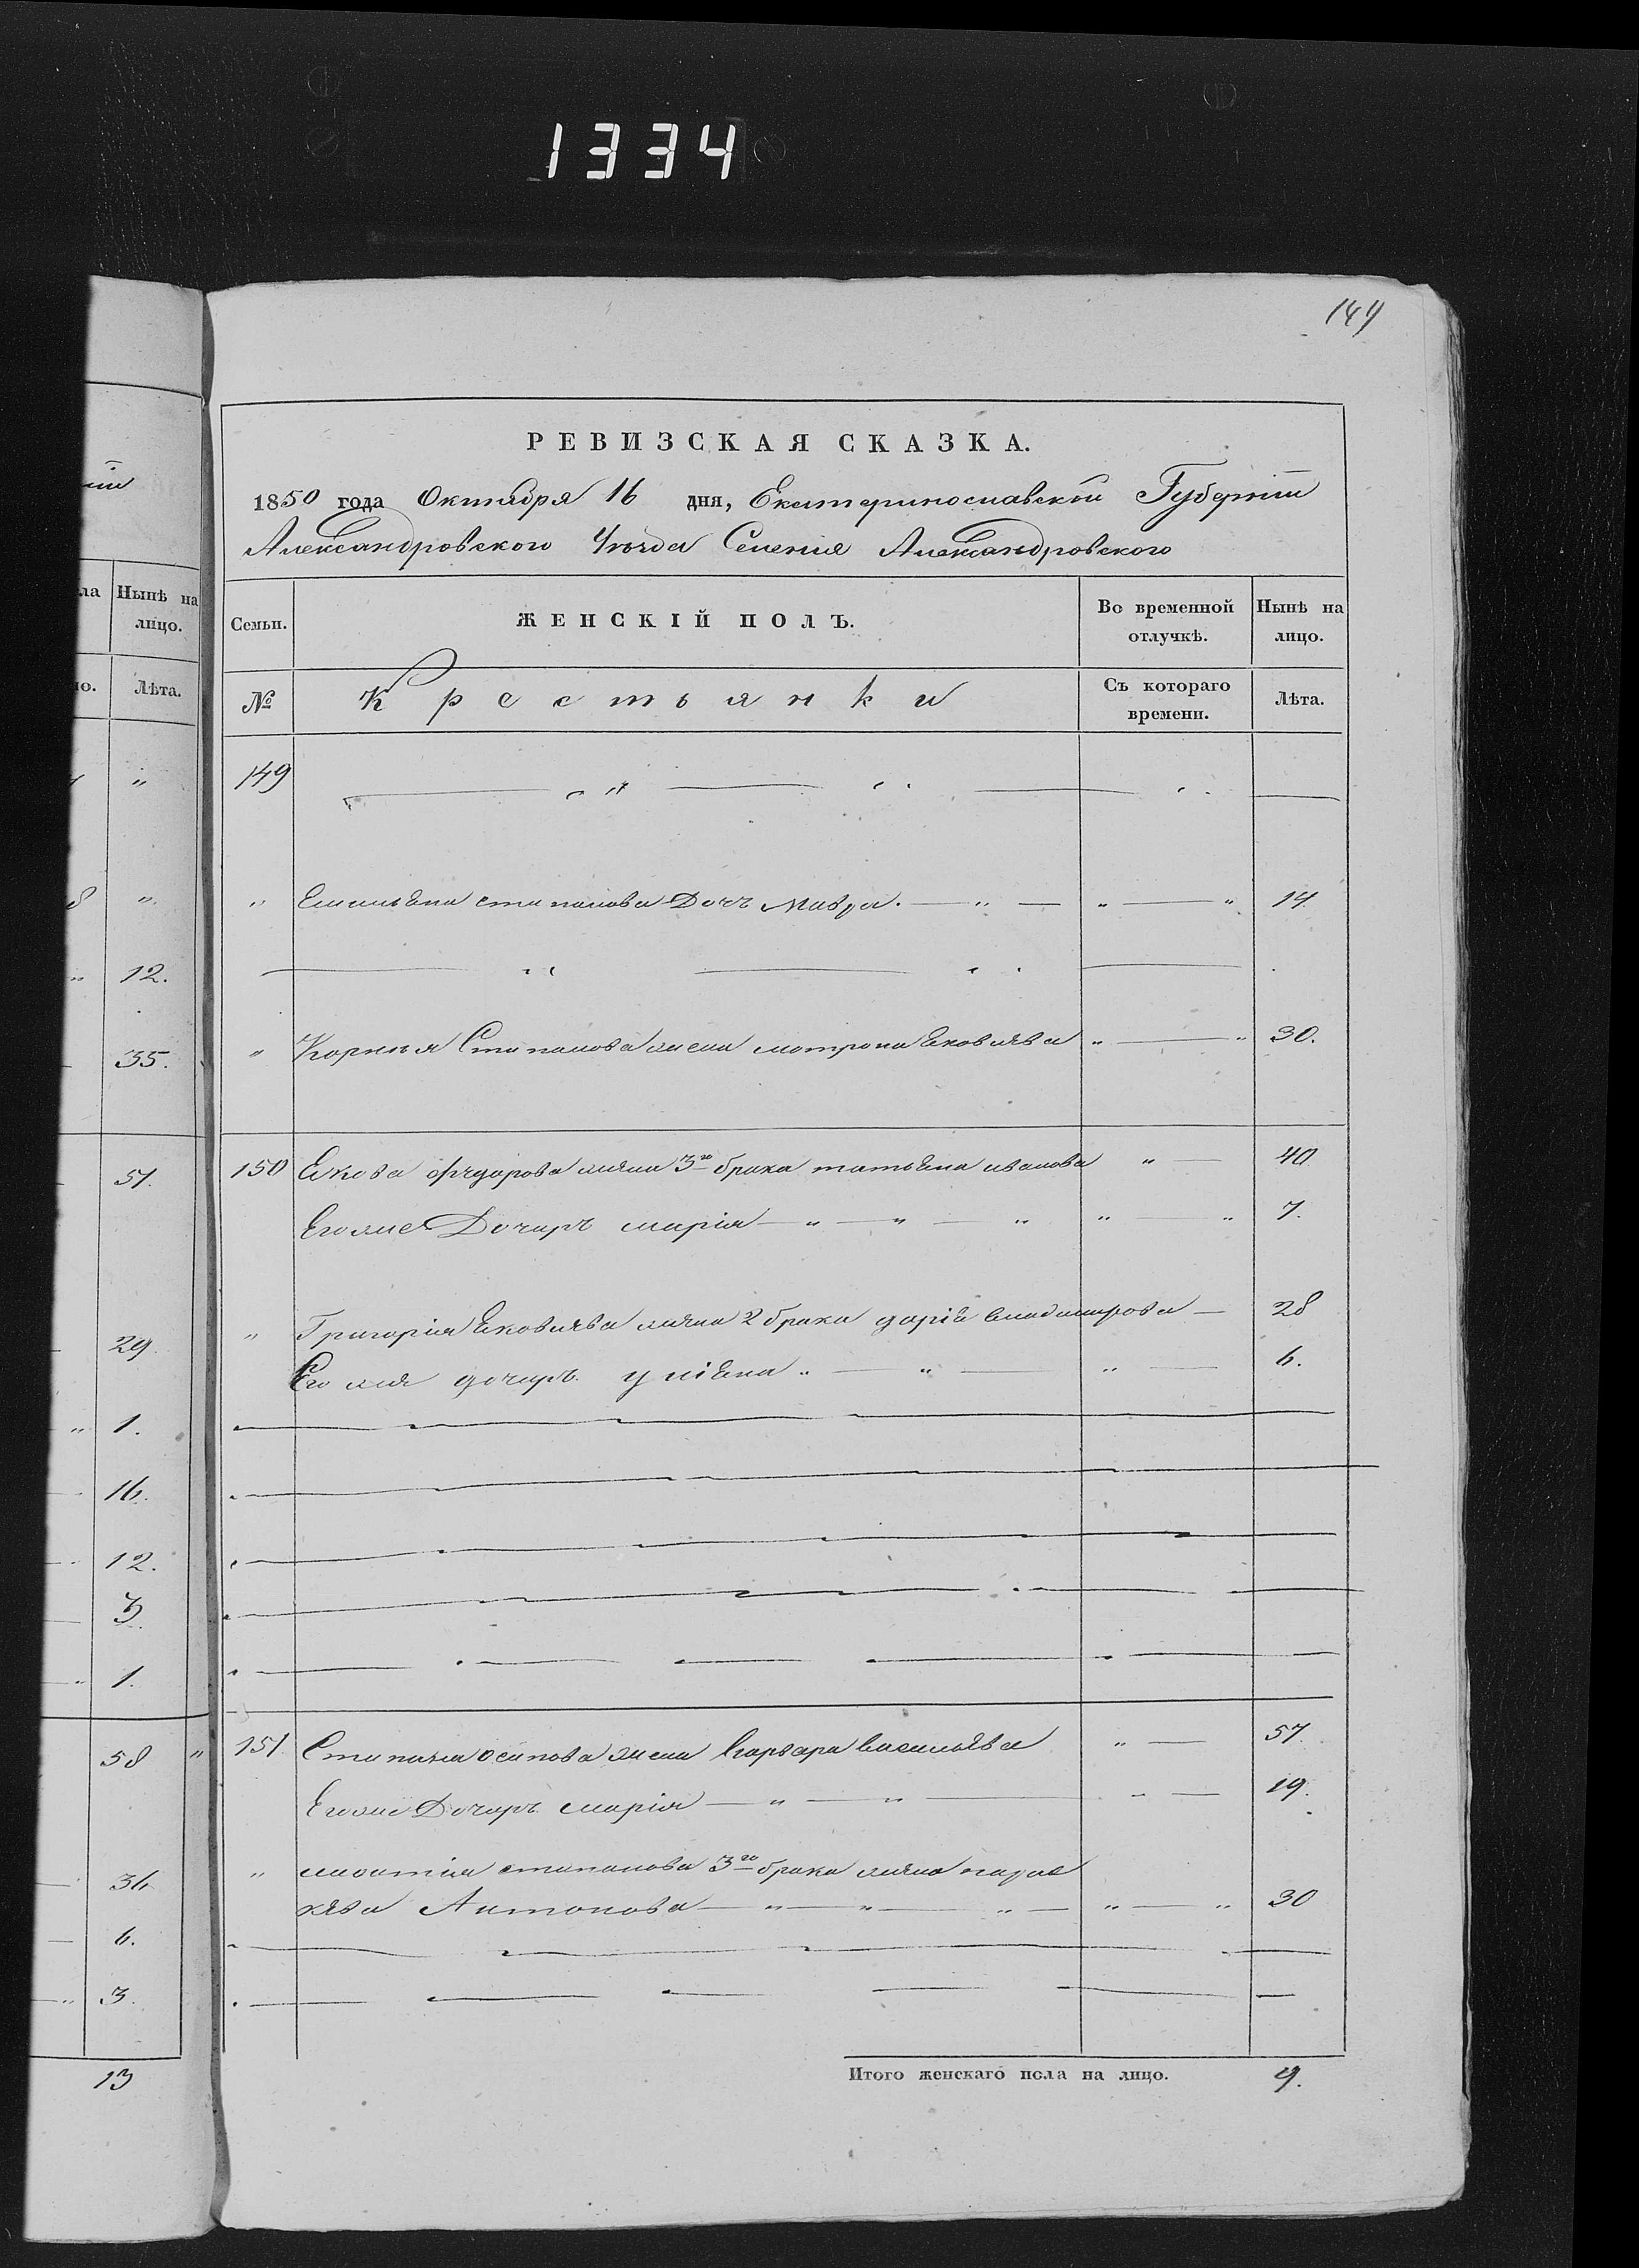 1334
144
РЕВИЗСКАЯ СКАЗКА.
1850 года Октября 16 дня, Екатеринославской Губерніи
Александровского Уѣзда Селенія Александровского
Семьи. ЖЕНСКІЙ ПОЛЪ. Во временной отлучкѣ. Нынѣ на лицо.
№ Крестьянки Съ котораго времени. Лѣта.
149
" степанова Дочь Мавра. " " " 14
" Корнья Степанова жена мотрона Яковлева " " 30.
150 Якова федорова жина 3го брака татьяна иванова " 40
Егоже Дочирь марія " " " " " 7.
" Григорія Яковлева жина 2 брака дарія владимирова 28
Его жа дочирь улiяна " " " 6.
151. Степана осипова жена варвара васильява " 57.
Егоже Дочирь марія " " " 19.
" степанова 3го брака жина парас
кява Антонова " " " " " 30
Итого женскаго пола на лицо. 9.
ла Нынѣ на
лицо.
ло. Лѣта.
"
"
" 12.
35.
51.
29.
" 1.
16.
12.
3.
" 1.
58 "
36
6.
" 3.
13